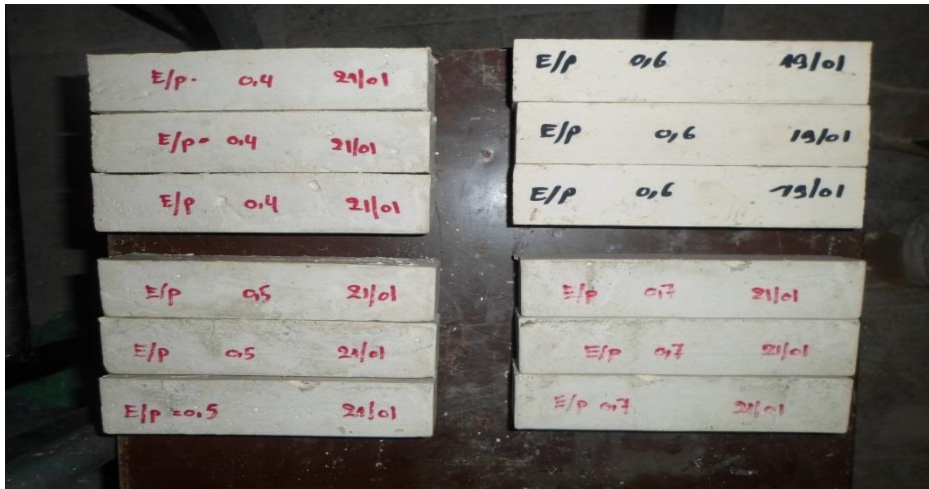 E/p. 0,4 21/01
E/p= 0,4 21/01
E/p 0,4 21/01
E/p 0,5 21/01
E/p 0,5 21/01
E/p =0,5 21/01
E/p 0,6 19/01
E/p 0,6 19/01
E/p 0,6 19/01
E/p 0,7 21/01
E/p 0,7 21/01
E/p 0,7 21/01